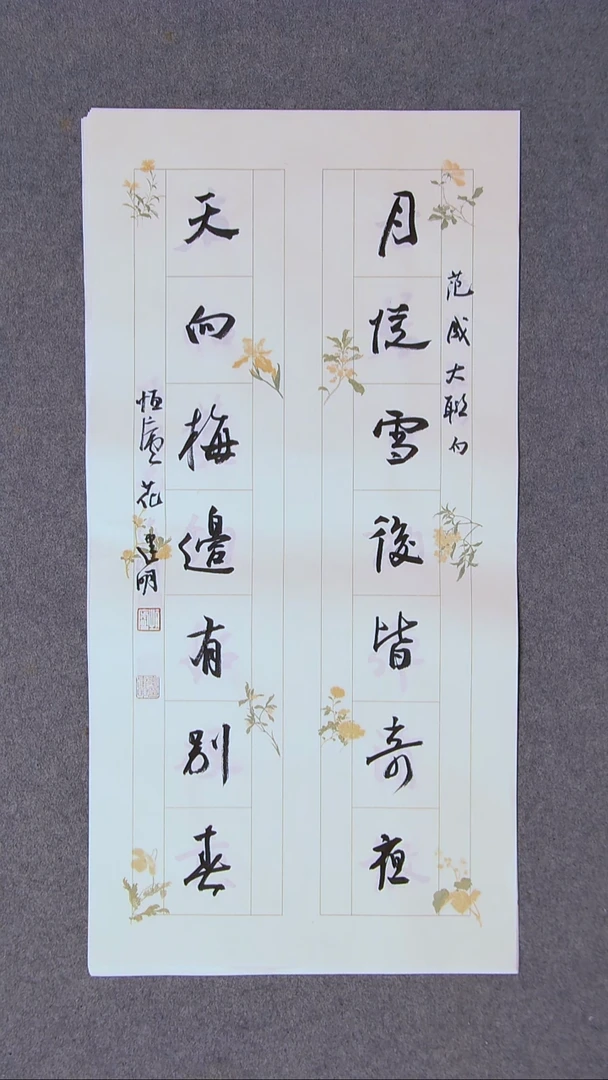 范成大聯句
月從雪後皆奇夜
天向梅邊有別春
恒花建明